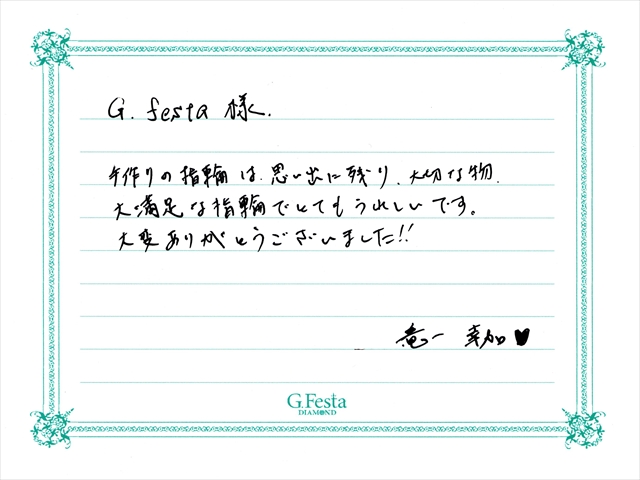 G. festa 様.
手作りの指輪は、思い出に残り、大切な物.
大満足な指輪でとてもうれしいです。
大変ありがとうございました!!
竜一 幸加♥
G.Festa
DIAMOND